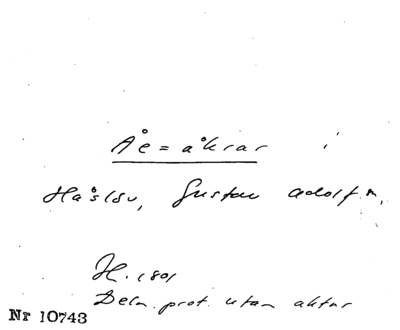 Åe=åkrar i
Håslöv, Gustav Adolf s.
H. 1801
Deln. prot. utan aktnr
Nr 10743